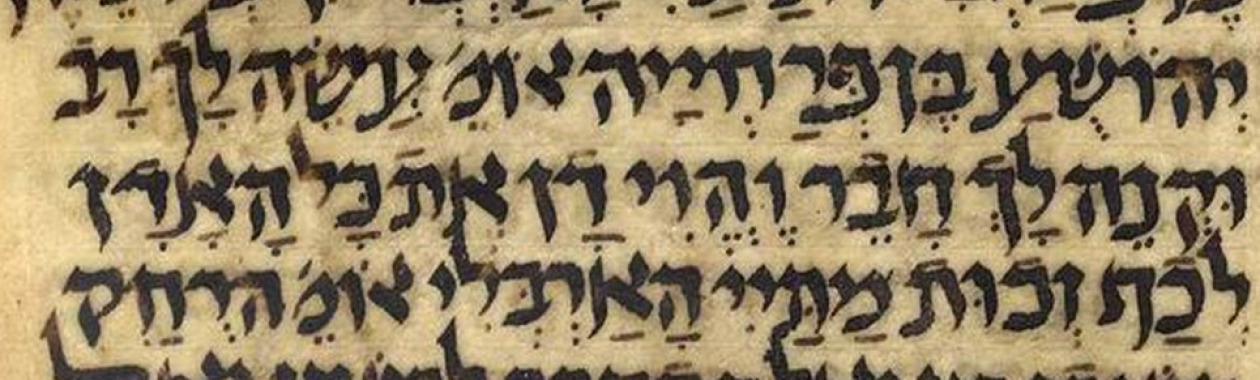 יְהוֹשֻׁעַ בֶּן פְּרַחְיַיה אוֹמֵ׳ עֲשֵׂה לָךְ רַב
וּקְנֵה לָךְ חָבֵר וֶהֱוִי דָן אֶת כָּל הָאָדָן
לְכַף זְכוּת מַתַּיי הָאַרְבֵּלִי אוֹמֵ׳ הַרְחֵק